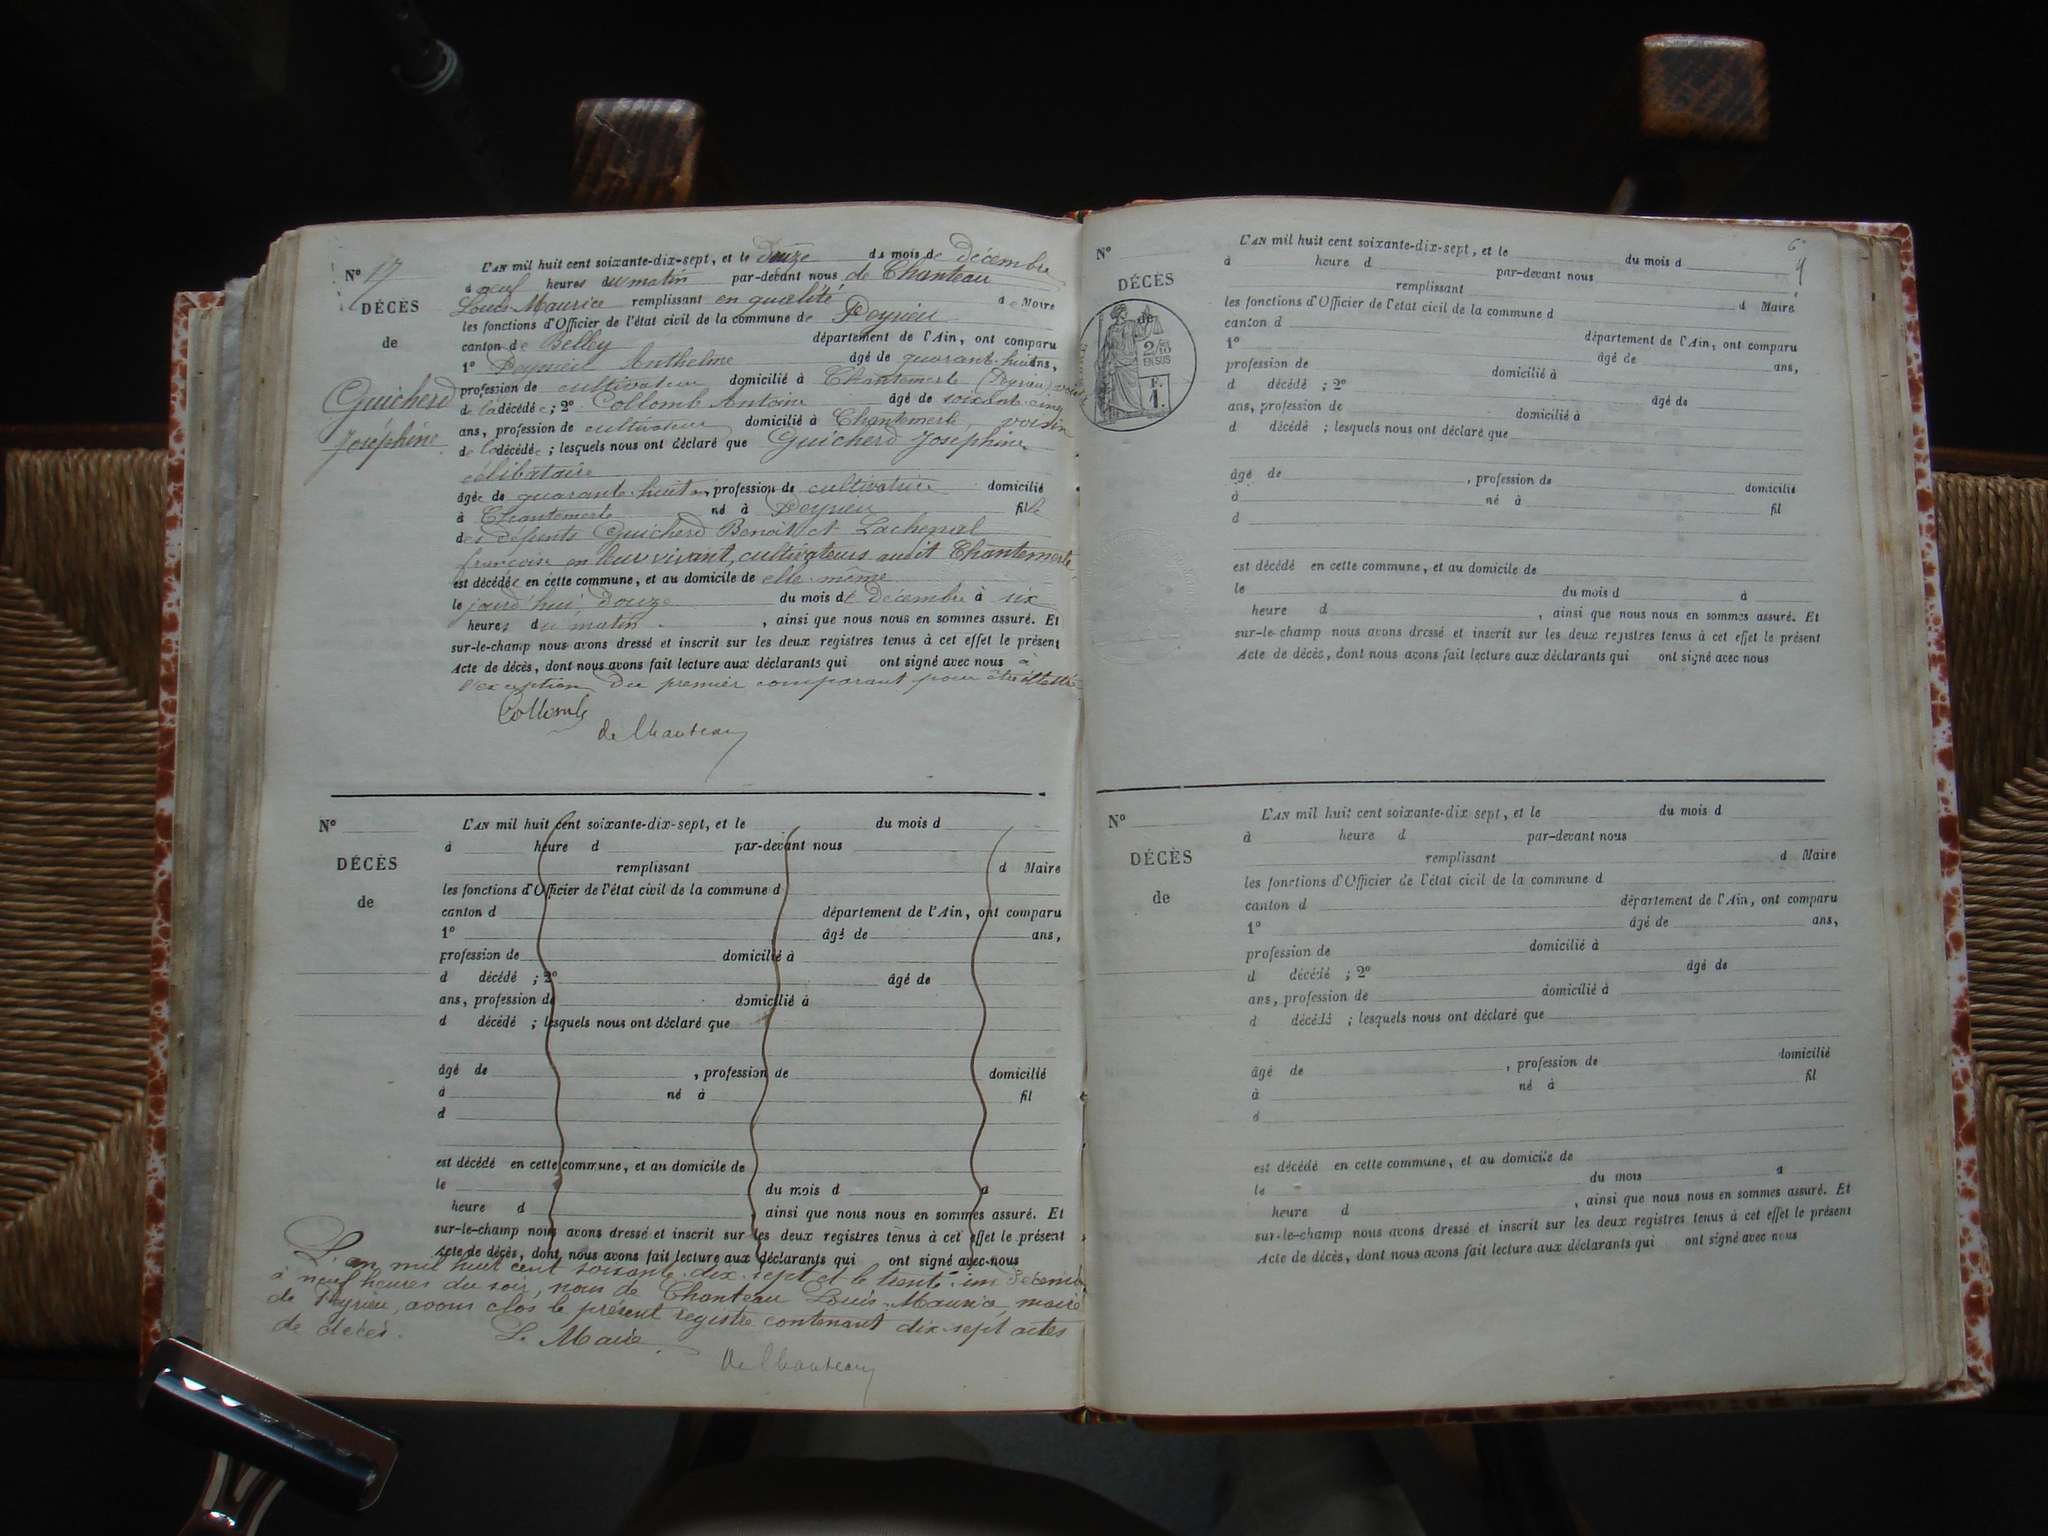 N° 17
DÉCÈS
de
Guicherd
Joséphine
L'AN mil huit cent soixante-dix-sept, et le Douze du mois de décembre
à neuf heures du matin par-devant nous de Chanteau
Louis Maurice remplissant en qualité de Maire
les fonctions d'Officier de l'état civil de la commune de Peyrieu
canton de Belley département de l'Ain, ont comparu
1° Peyrieu Anthelme âgé de quarante-huit ans,
profession de cultivateur domicilié à Chantemerle (Peyrieu) voisin
de la décédée ; 2° Collomb Antoine âgé de soixante cinq
ans, profession de cultivateur domicilié à Chantemerle, voisin
de la décédée ; lesquels nous ont déclaré que Guicherd Joséphine
célibataire
âgée de quarante-huit ans, profession de cultivatrice domicilié
à Chantemerle né à Peyrieu fille
des défunts Guicherd Benoit et Lachenal
françoise en leur vivant, cultivateurs audit Chantemerle
est décédée en cette commune, et au domicile de elle-même
le jourd'hui Douze du mois de Décembre à six
heures du matin, ainsi que nous nous en sommes assuré. Et
sur-le-champ nous avons dressé et inscrit sur les deux registres tenus à cet effet le présent
Acte de décès, dont nous avons fait lecture aux déclarants qui ont signé avec nous à
l'exception du premier comparant pour être illettré
Collomb
de Chanteau
N°
DÉCÈS
de
L'AN mil huit cent soixante-dix-sept, et le du mois d
à heure d par-devant nous
remplissant d Maire
les fonctions d'Officier de l'état civil de la commune d
canton d département de l'Ain, ont comparu
1° âgé de ans,
profession de domicilié à
d décédé ; 2° âgé de
ans, profession de domicilié à
d décédé ; lesquels nous ont déclaré que
âgé de , profession de domicilié
à né à fil
d
est décédé en cette commune, et au domicile de
le du mois d à
heure d ainsi que nous nous en sommes assuré. Et
sur-le-champ nous avons dressé et inscrit sur les deux registres tenus à cet effet le présent
Acte de décès, dont nous avons fait lecture aux déclarants qui ont signé avec nous
L'an mil huit cent soixante-dix-sept et le trente-un Décembre
à neuf heures du soir, nous de Chanteau Louis-Maurice, maire
de Peyrieu, avons clos le présent registre contenant dix-sept actes
de décès. Le Maire
de Chanteau
N°
DÉCÈS
de
2/10
EN SUS
F.
1.
L'AN mil huit cent soixante-dix-sept, et le du mois d
à heure d par-devant nous
remplissant d Maire
les fonctions d'Officier de l'état civil de la commune d
canton d département de l'Ain, ont comparu
1° âgé de ans,
profession de domicilié à
d décédé ; 2° âgé de
ans, profession de domicilié à
d décédé ; lesquels nous ont déclaré que
âgé de , profession de domicilié
à né à fil
d
est décédé en cette commune, et au domicile de
le du mois d à
heure d , ainsi que nous nous en sommes assuré. Et
sur-le-champ nous avons dressé et inscrit sur les deux registres tenus à cet effet le présent
Acte de décès, dont nous avons fait lecture aux déclarants qui ont signé avec nous
N°
DÉCÈS
de
L'AN mil huit cent soixante-dix sept, et le du mois d
à heure d par-devant nous
remplissant d Maire
les fonctions d'Officier de l'état civil de la commune d
canton d département de l'Ain, ont comparu
1° âgé de ans,
profession de domicilié à
d décédé ; 2° âgé de
ans, profession de domicilié à
d décédé ; lesquels nous ont déclaré que
âgé de , profession de domicilié
à né à fil
d
est décédé en cette commune, et au domicile de
le du mois à
heure d , ainsi que nous nous en sommes assuré. Et
sur-le-champ nous avons dressé et inscrit sur les deux registres tenus à cet effet le présent
Acte de décès, dont nous avons fait lecture aux déclarants qui ont signé avec nous